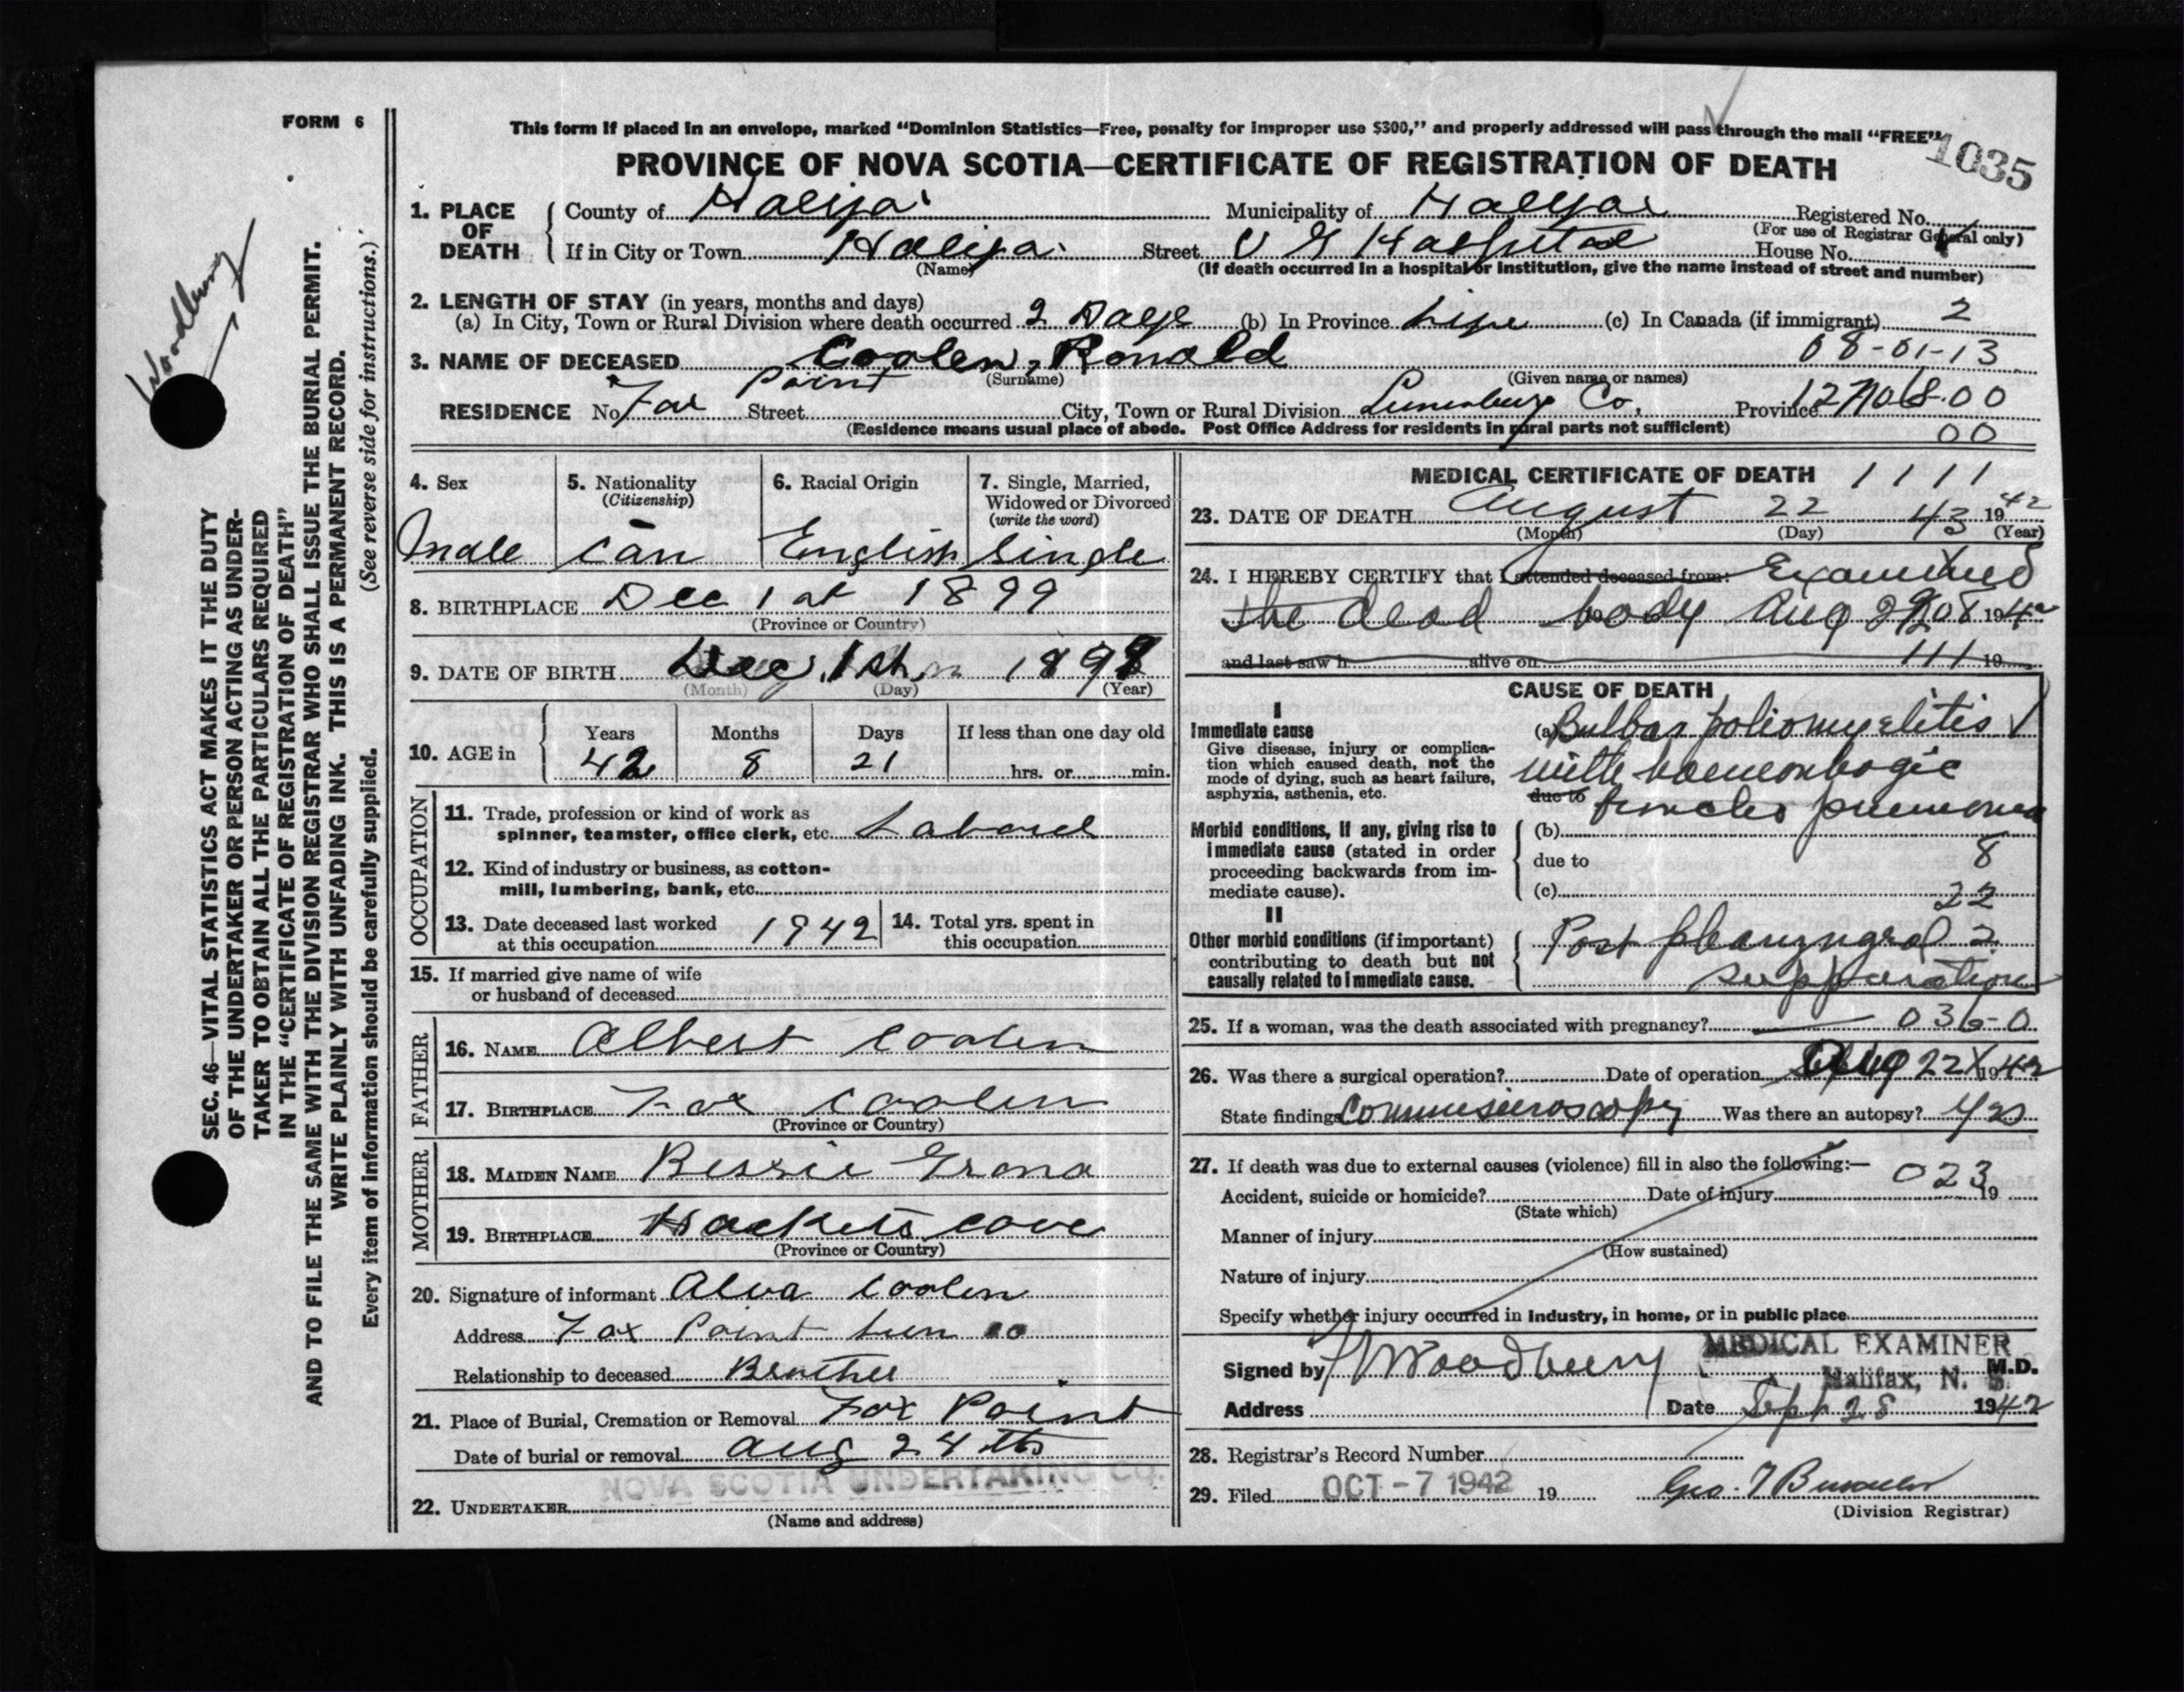 FORM 6
This form if placed in an envelope, marked "Dominion Statistics—Free, penalty for improper use $300," and properly addressed will pass through the mail "FREE"
PROVINCE OF NOVA SCOTIA—CERTIFICATE OF REGISTRATION OF DEATH
1035
Woodbury
SEC. 46—VITAL STATISTICS ACT MAKES IT THE DUTY
OF THE UNDERTAKER OR PERSON ACTING AS UNDER-
TAKER TO OBTAIN ALL THE PARTICULARS REQUIRED
IN THE "CERTIFICATE OF REGISTRATION OF DEATH"
AND TO FILE THE SAME WITH THE DIVISION REGISTRAR WHO SHALL ISSUE THE BURIAL PERMIT.
WRITE PLAINLY WITH UNFADING INK. THIS IS A PERMANENT RECORD.
Every item of information should be carefully supplied. (See reverse side for instructions.)
1. PLACE OF DEATH County of Halifax Municipality of Halifax Registered No.
(For use of Registrar General only)
If in City or Town Halifax Street V G Hospital House No.
(Name) (If death occurred in a hospital or institution, give the name instead of street and number)
2. LENGTH OF STAY (in years, months and days)
(a) In City, Town or Rural Division where death occurred 2 Days (b) In Province Life (c) In Canada (if immigrant) 2
3. NAME OF DECEASED Coolen, Ronald 08-01-13
(Surname) (Given name or names)
RESIDENCE No. Fox Point Street City, Town or Rural Division Lunenburg Co, Province
(Residence means usual place of abode. Post Office Address for residents in rural parts not sufficient) 00
4. Sex 5. Nationality 6. Racial Origin 7. Single, Married,
(Citizenship) Widowed or Divorced
(write the word)
Male Can English Single
8. BIRTHPLACE Dec 1 at 1899
(Province or Country)
9. DATE OF BIRTH Dec 1st 189
(Month) (Day) (Year)
10. AGE in Years Months Days If less than one day old
42 8 21 hrs. or min.
OCCUPATION
11. Trade, profession or kind of work as
spinner, teamster, office clerk, etc. Laborer
12. Kind of industry or business, as cotton-
mill, lumbering, bank, etc.
13. Date deceased last worked 14. Total yrs. spent in
at this occupation 1942 this occupation
15. If married give name of wife
or husband of deceased
FATHER
16. NAME Albert Coolen
17. BIRTHPLACE Fox Coolen
(Province or Country)
MOTHER
18. MAIDEN NAME Bessie Grono
19. BIRTHPLACE Hackets Cove
(Province or Country)
20. Signature of informant Alva Coolen
Address Fox Point Lun Co
Relationship to deceased Brother
21. Place of Burial, Cremation or Removal Fox Point
Date of burial or removal Aug 24 th
NOVA SCOTIA UNDERTAKING CO.
22. UNDERTAKER
(Name and address)
MEDICAL CERTIFICATE OF DEATH 1111
23. DATE OF DEATH August 22 43 19 42
(Month) (Day) (Year)
24. I HEREBY CERTIFY that I attended deceased from: Examined
the dead body Aug 1942
and last saw h alive on 111 19
CAUSE OF DEATH
I
Immediate cause (a) Bulbar poliomyelitis
Give disease, injury or complica-
tion which caused death, not the
mode of dying, such as heart failure,
asphyxia, asthenia, etc.
with haemorrhagic
due to
pneumonia
Morbid conditions, if any, giving rise to (b)
immediate cause (stated in order
proceeding backwards from im-
mediate cause).
due to 8
(c) 22
II
Other morbid conditions (if important)
contributing to death but not
causally related to immediate cause.
Post pharyngeal 2
suppuration
25. If a woman, was the death associated with pregnancy? 036-0
26. Was there a surgical operation? Date of operation Aug 22 1942
State findings Was there an autopsy? Yes
27. If death was due to external causes (violence) fill in also the following:— 023
Accident, suicide or homicide? Date of injury 19
(State which)
Manner of injury
(How sustained)
Nature of injury
Specify whether injury occurred in industry, in home, or in public place
Signed by Woodbury MEDICAL EXAMINER M.D.
Halifax, N. S.
Address Date Sept 28 1942
28. Registrar's Record Number
29. Filed OCT - 7 1942 19
(Division Registrar)